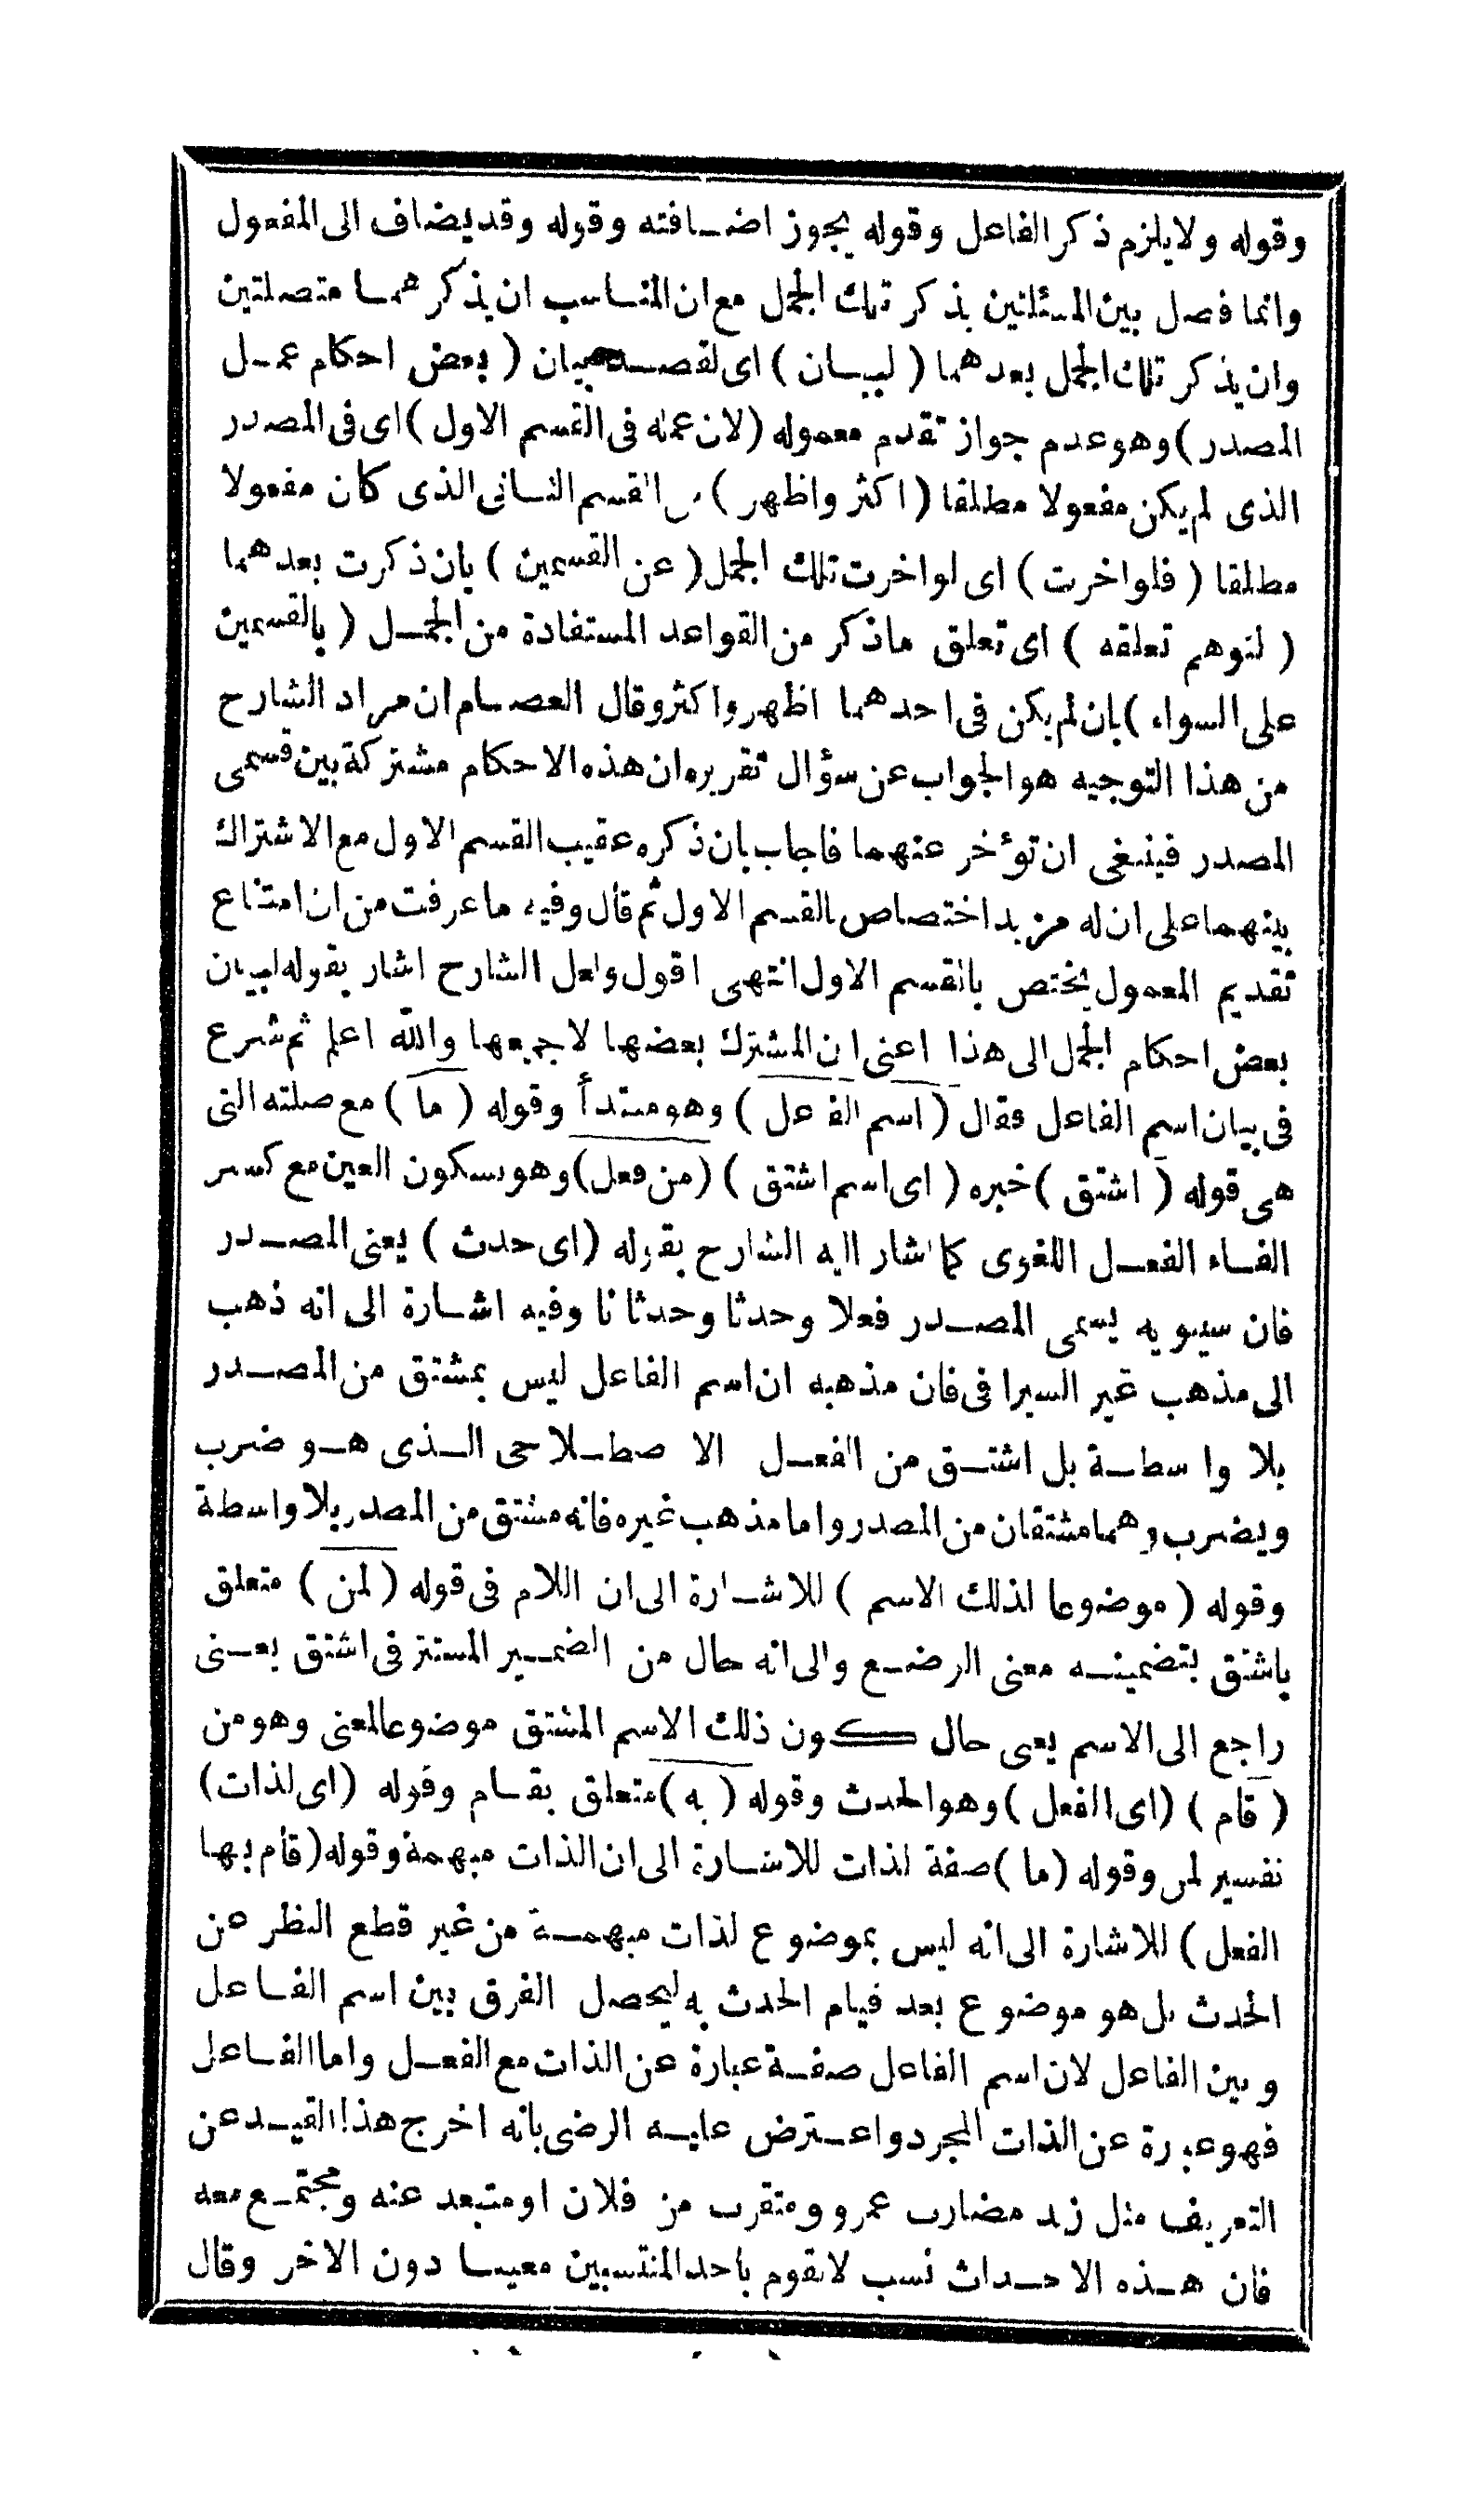 وقوله ولا يلزم ذكر الفاعل وقوله يجوز اضافته وقوله وقد يضاف الى المفعول
وانما فصل بين المسئلتين بذكر تلك الجمل مع ان المناسب ان يذكرهما متصلتين
وان يذكر تلك الجمل بعدهما ( لبيان ) اى لقصد بيان ( بعض احكام عمل
المصدر ) وهو عدم جواز تقدم معموله ( لان عمله فى القسم الاول ) اى فى المصدر
الذى لم يكن مفعولا مطلقا ( اكثر واظهر ) من القسم الثانى الذى كان مفعولا
مطلقا ( فلو اخرت ) اى لو اخرت تلك الجمل ( عن القسمين ) بان ذكرت بعدهما
( لتوهم تعلقه ) اى تعلق ما ذكر من القواعد المستفادة من الجمل ( بالقسمين
على السواء ) بان لم يكن فى احدهما اظهر واكثر وقال العصام ان مراد الشارح
من هذا التوجيه هو الجواب عن سؤال تقريره ان هذه الاحكام مشتركة بين قسمى
المصدر فينبغى ان تؤخر عنهما فاجاب بان ذكره عقيب القسم الاول مع الاشتراك
بينهما على ان له مزيد اختصاص بالقسم الاول ثم قال وفيه ما عرفت من ان امتناع
تقديم المعمول يختص بالقسم الاول انتهى اقول ولعل الشارح اشار بقوله لبيان
بعض احكام الجمل الى هذا اعنى ان المشترك بعضها لا جميعها والله اعلم ثم شرع
فى بيان اسم الفاعل فقال ( اسم الفاعل ) وهو مبتدأ وقوله ( ما ) مع صلته التى
هى قوله ( اشتق ) خبره ( اى اسم اشتق ) ( من فعل ) وهو بسكون العين مع كسر
الفاء الفعل اللغوى كما اشار اليه الشارح بقوله ( اى حدث ) يعنى المصدر
فان سيبويه يسمى المصدر فعلا وحدثا وحدثانا وفيه اشارة الى انه ذهب
الى مذهب غير السيرافى فان مذهبه ان اسم الفاعل ليس بمشتق من المصدر
بلا واسطة بل اشتق من الفعل الاصطلاحى الذى هو ضرب
ويضرب وهما مشتقان من المصدر واما مذهب غيره فانه مشتق من المصدر بلا واسطة
وقوله ( موضوعا لذلك الاسم ) للاشارة الى ان اللام فى قوله ( لمن ) متعلق
باشتق بتضمينه معنى الوضع والى انه حال من الضمير المستتر فى اشتق يعنى
راجع الى الاسم يعى حال كون ذلك الاسم المشتق موضوعا لمعنى وهو من
( قام ) ( اى الفعل ) وهو الحدث وقوله ( به ) متعلق بقام وقوله ( اى لذات )
تفسير لمن وقوله ( ما ) صفة لذات للاشارة الى ان الذات مبهمة وقوله ( قام بها
الفعل ) للاشارة الى انه ليس بموضوع لذات مبهمة من غير قطع النظر عن
الحدث بل هو موضوع بعد قيام الحدث به ليحصل الفرق بين اسم الفاعل
وبين الفاعل لان اسم الفاعل صفة عبارة عن الذات مع الفعل واما الفاعل
فهو عبارة عن الذات المجرد واعترض عليه الرضى بانه اخرج هذا القيد عن
التعريف مثل زيد مضارب عمرو ومتقرب من فلان او متبعد عنه ومجتمع معه
فان هذه الاحداث نسب لا تقوم باحد المنتسبين معينا دون الاخر وقال